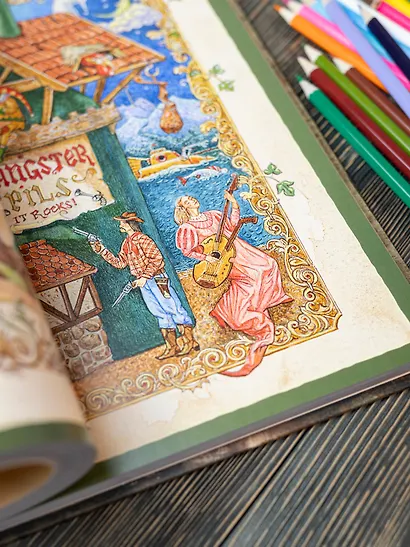 ANGSTER
PILS
IT ROCKS!